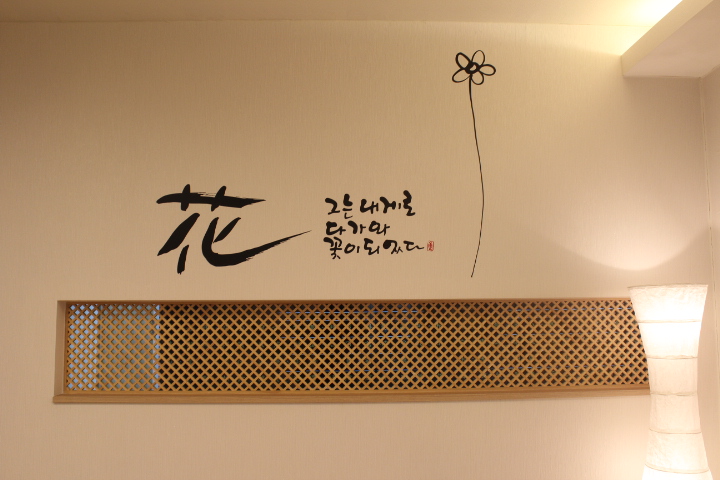 花
그는 내게로
다가와
꽃이 되었다